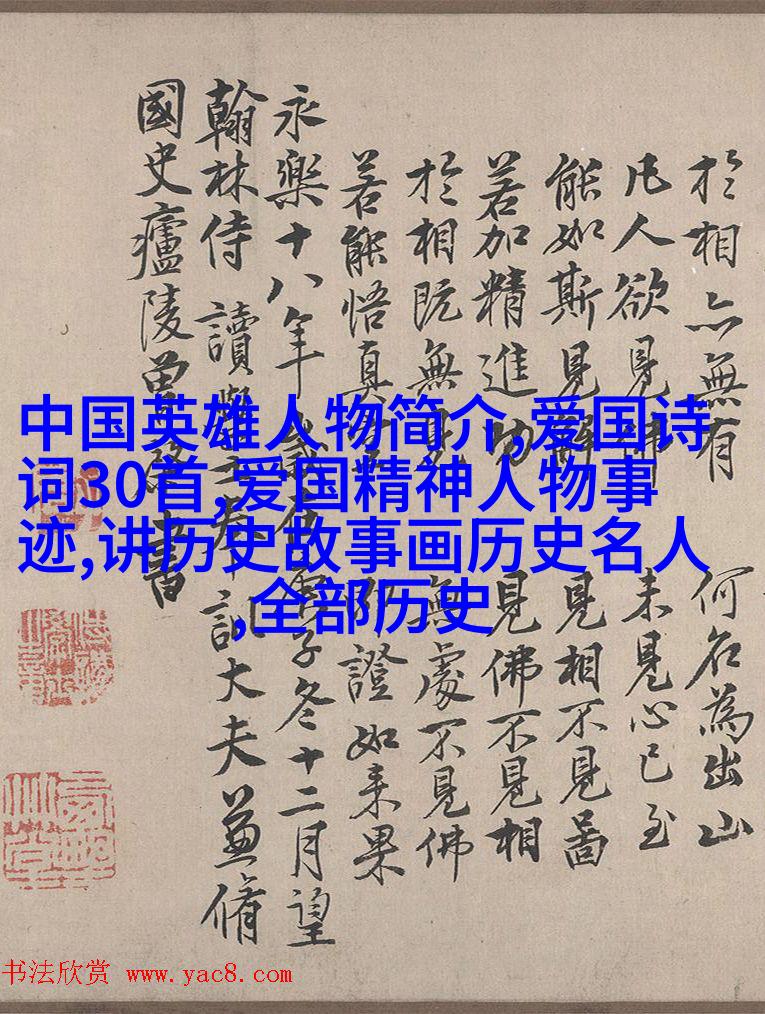 於相亦無有 何名為出山
凡人欲見佛 未見心已至
能如斯見解 見相不見啚
若加精進功 見佛不見相
於相既無見 無處不見佛
若能悟真 即證如来果
永樂十八年歲在庚子冬十二月望
翰林侍讀學士奉訓大夫兼脩
國史廬陵曾棨書
中国英雄人物简介,爱国诗
词30首,爱国精神人物事
迹,讲历史故事画历史名人
,全部历史
书法欣赏 www.yac8.com